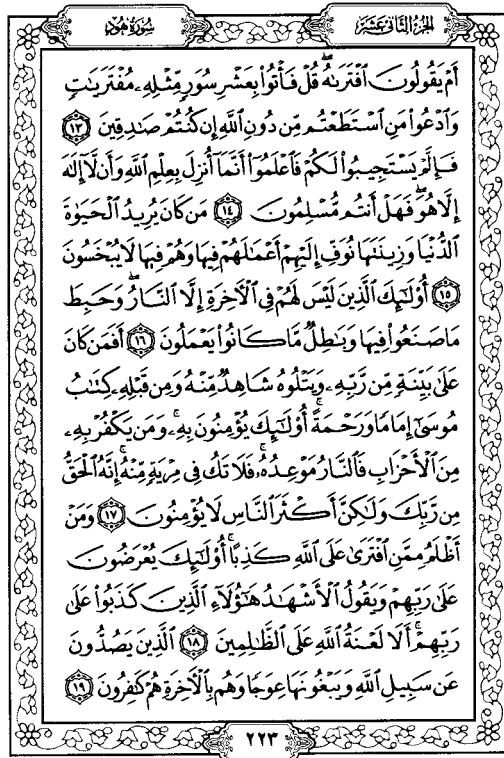 سُورَةُ هُودٍ
الجُزءُ الثَّانِي عَشَرَ
أَمْ يَقُولُونَ ٱفْتَرَىٰهُۖ قُلْ فَأْتُوا۟ بِعَشْرِ سُوَرٍ مِّثْلِهِۦ مُفْتَرَيَٰتٍ
وَٱدْعُوا۟ مَنِ ٱسْتَطَعْتُم مِّن دُونِ ٱللَّهِ إِن كُنتُمْ صَٰدِقِينَ ١٣
فَإِلَّمْ يَسْتَجِيبُوا۟ لَكُمْ فَٱعْلَمُوٓا۟ أَنَّمَآ أُنزِلَ بِعِلْمِ ٱللَّهِ وَأَن لَّآ إِلَٰهَ
إِلَّا هُوَۖ فَهَلْ أَنتُم مُّسْلِمُونَ ١٤ مَن كَانَ يُرِيدُ ٱلْحَيَوٰةَ
ٱلدُّنْيَا وَزِينَتَهَا نُوَفِّ إِلَيْهِمْ أَعْمَٰلَهُمْ فِيهَا وَهُمْ فِيهَا لَا يُبْخَسُونَ
١٥ أُو۟لَٰٓئِكَ ٱلَّذِينَ لَيْسَ لَهُمْ فِى ٱلْءَاخِرَةِ إِلَّا ٱلنَّارُۖ وَحَبِطَ
مَا صَنَعُوا۟ فِيهَا وَبَٰطِلٌ مَّا كَانُوا۟ يَعْمَلُونَ ١٦ أَفَمَن كَانَ
عَلَىٰ بَيِّنَةٍ مِّن رَّبِّهِۦ وَيَتْلُوهُ شَاهِدٌ مِّنْهُ وَمِن قَبْلِهِۦ كِتَٰبُ
مُوسَىٰٓ إِمَامًا وَرَحْمَةًۚ أُو۟لَٰٓئِكَ يُؤْمِنُونَ بِهِۦۚ وَمَن يَكْفُرْ بِهِۦ
مِنَ ٱلْأَحْزَابِ فَٱلنَّارُ مَوْعِدُهُۥۚ فَلَا تَكُ فِى مِرْيَةٍ مِّنْهُۚ إِنَّهُ ٱلْحَقُّ
مِن رَّبِّكَ وَلَٰكِنَّ أَكْثَرَ ٱلنَّاسِ لَا يُؤْمِنُونَ ١٧ وَمَنْ
أَظْلَمُ مِمَّنِ ٱفْتَرَىٰ عَلَى ٱللَّهِ كَذِبًاۚ أُو۟لَٰٓئِكَ يُعْرَضُونَ
عَلَىٰ رَبِّهِمْ وَيَقُولُ ٱلْأَشْهَٰدُ هَٰٓؤُلَآءِ ٱلَّذِينَ كَذَبُوا۟ عَلَىٰ
رَبِّهِمْۚ أَلَا لَعْنَةُ ٱللَّهِ عَلَى ٱلظَّٰلِمِينَ ١٨ ٱلَّذِينَ يَصُدُّونَ
عَن سَبِيلِ ٱللَّهِ وَيَبْغُونَهَا عِوَجًا وَهُم بِٱلْءَاخِرَةِ هُمْ كَٰفِرُونَ ١٩
٢٢٣